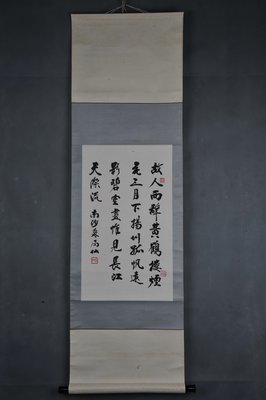 故人西辭黃鶴樓煙
花三月下揚州孤帆遠
影碧空盡惟見長江
天際流 南沙